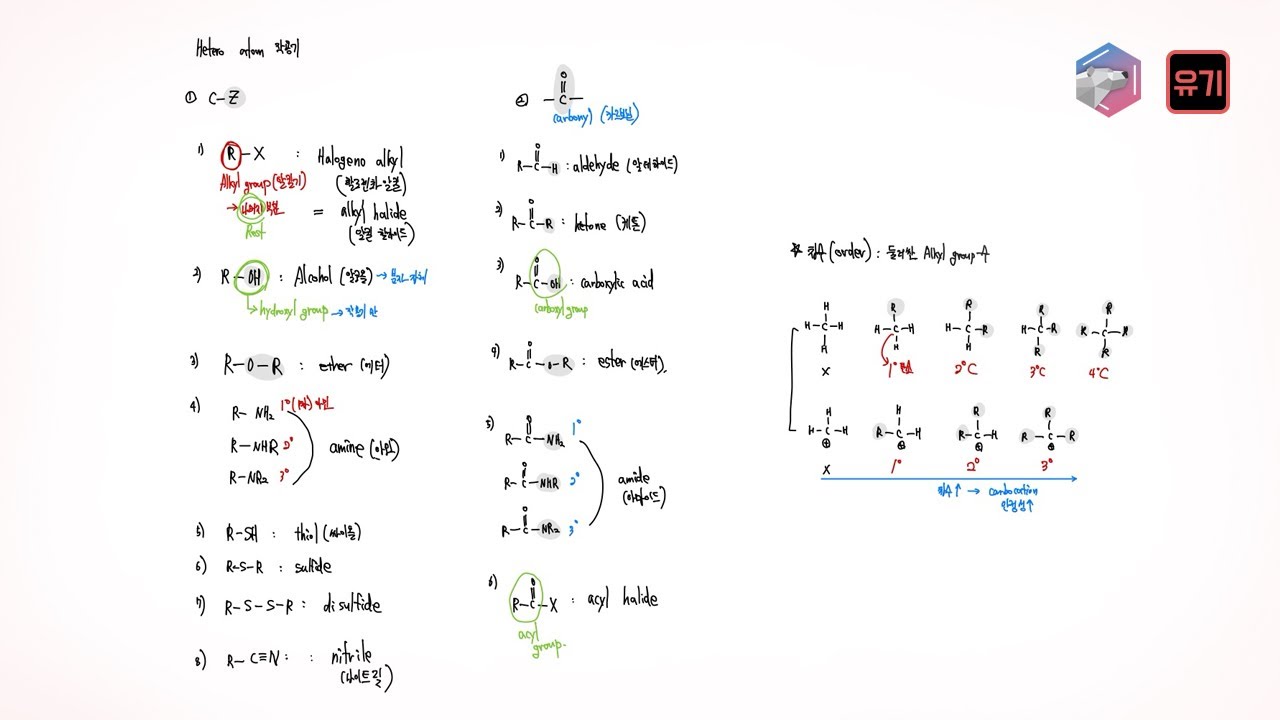 Hetero atom 작용기
유기
① C-Z
1) R-X : Halogeno alkyl
(할로젠화 알킬)
Alkyl group (알킬기)
→ 나머지 부분
Rest
= alkyl halide
(알킬 할라이드)
2) R-OH : Alcohol (알코올) → 분자 전체
↳ hydroxyl group → 작용기 만
3) R-O-R : ether (에터)
4) R-NH2 1° (1차) 아민
R-NHR 2°
R-NR2 3°
amine (아민)
5) R-SH : thiol (싸이올)
6) R-S-R : sulfide
7) R-S-S-R : disulfide
8) R-C≡N: : nitrile
(나이트릴)
② O
-C-
carbonyl (카보닐)
1) O
R-C-H : aldehyde (알데하이드)
2) O
R-C-R : ketone (케톤)
3) O
R-C-OH : carboxylic acid
carboxyl group
4) O
R-C-O-R : ester (에스터)
5) O
R-C-NH2 1°
O
R-C-NHR 2°
O
R-C-NR2 3°
amide
(아마이드)
6) O
R-C-X : acyl halide
acyl
group.
☆ 차수(order) : 둘러싼 Alkyl group 수
H R R R R
H-C-H H-C-H H-C-R H-C-R R-C-R
H H H R R
X 1° 탄소 2°C 3°C 4°C
H H R R
H-C-H R-C-H R-C-H R-C-R
⊕ ⊕ ⊕ ⊕
X 1° 2° 3°
차수↑ → carbocation
안정성↑